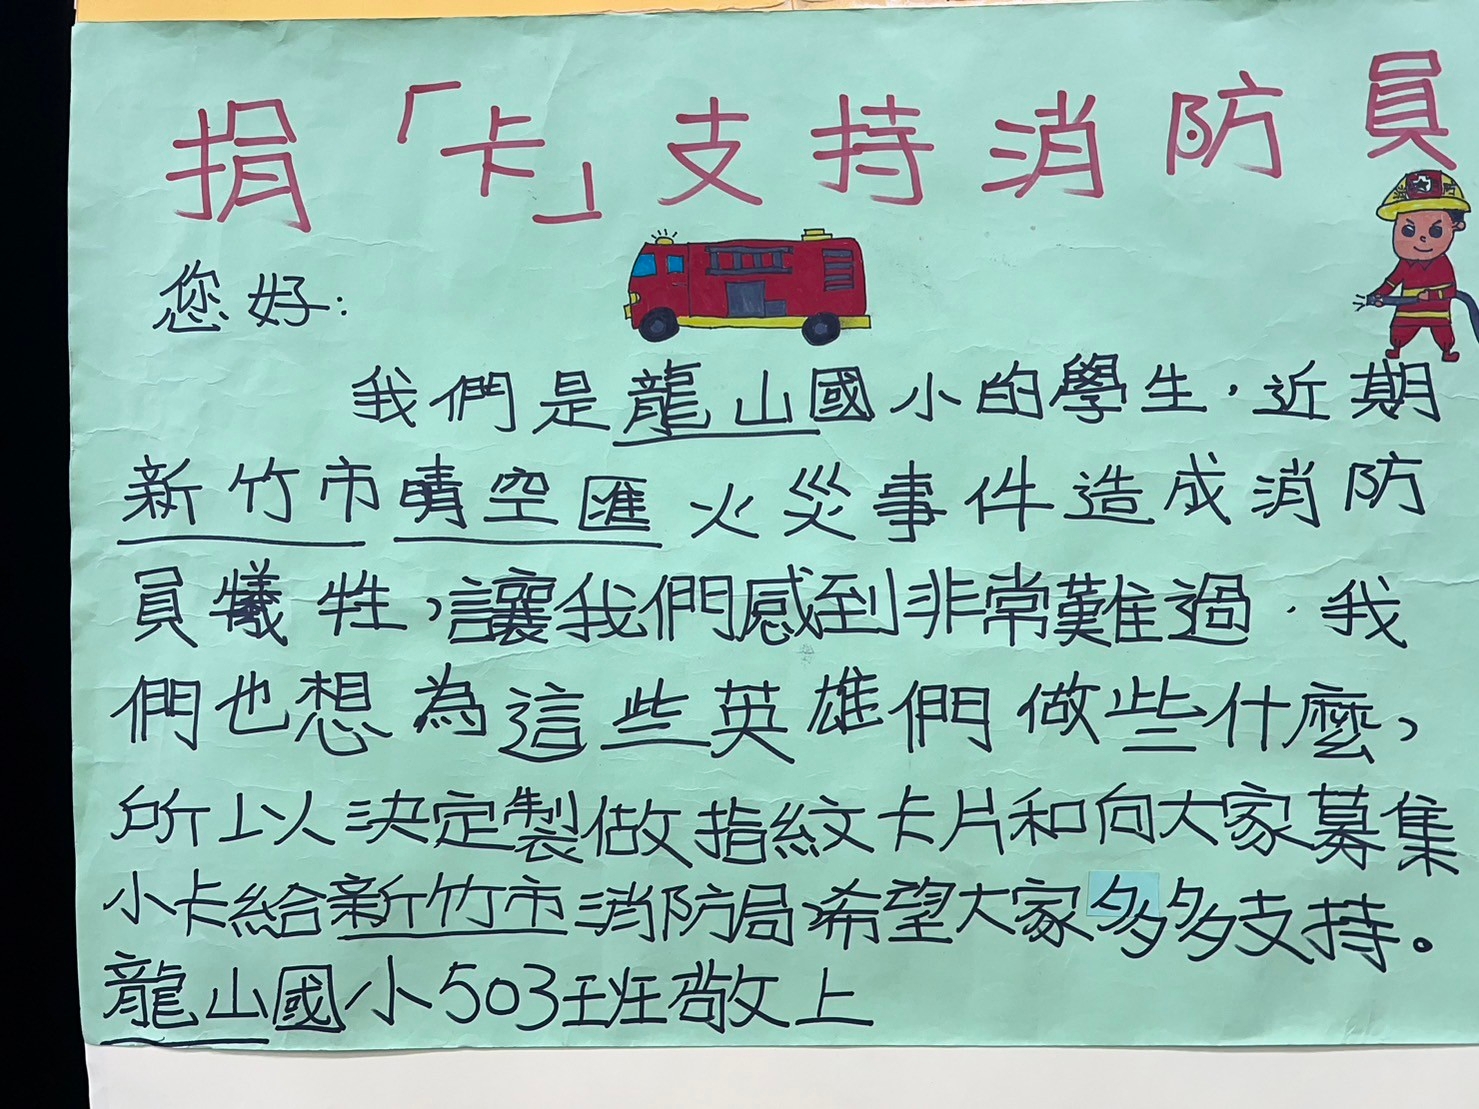 捐「卡」支持消防員
您好:
我們是龍山國小的學生,近期
新竹市晴空匯火災事件造成消防
員犧牲,讓我們感到非常難過.我
們也想為這些英雄們做些什麼,
所以決定製做指紋卡片和向大家募集
小卡給新竹市消防局,希望大家多多支持。
龍山國小503班敬上